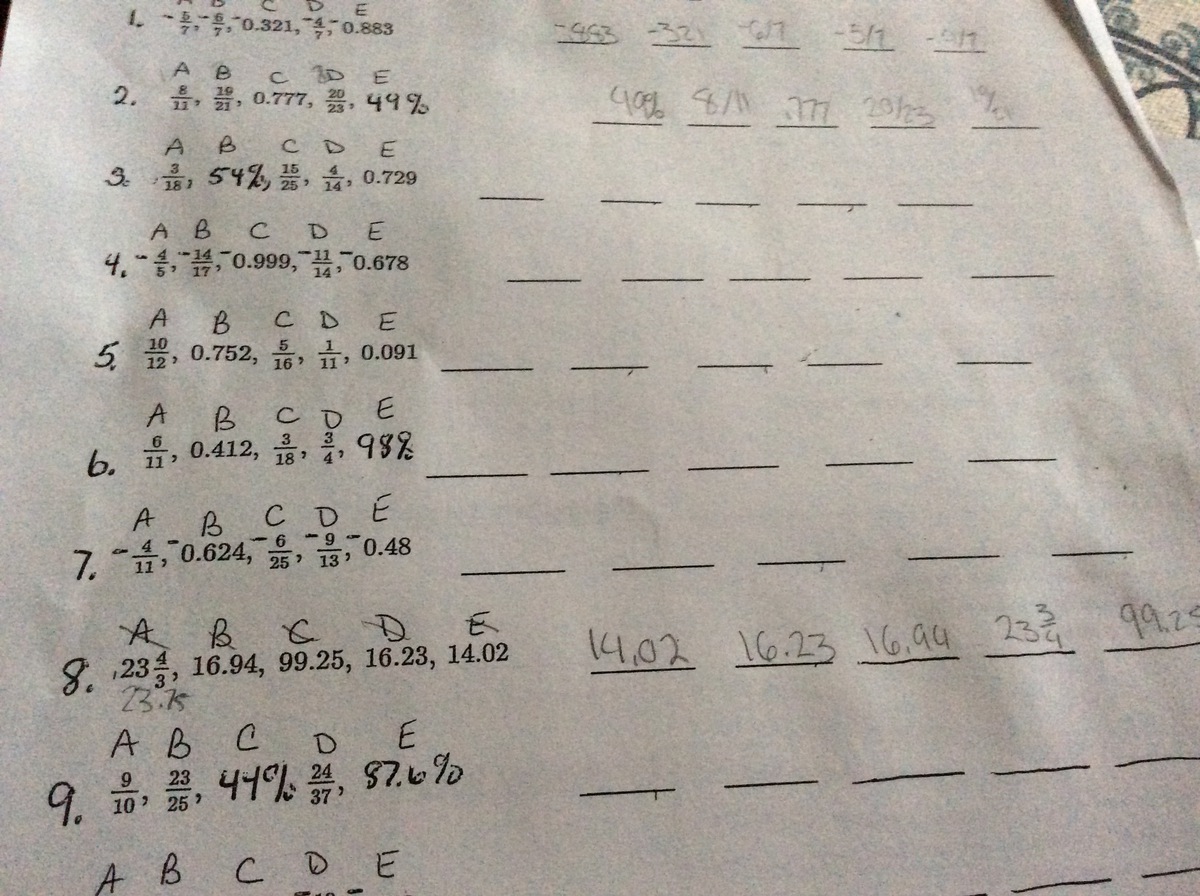 A B C D E
1. -5/7, -6/7, -0.321, -4/7, -0.883 -883 -321 -6/7 -5/7 -4/7
A B C D E
2. 8/11, 19/21, 0.777, 20/23, 49% 49% 8/11 .777 20/23
A B C D E
3. 3/18, 54%, 15/25, 4/14, 0.729
A B C D E
4. -4/5, -14/17, -0.999, -11/14, -0.678
A B C D E
5. 10/12, 0.752, 5/16, 1/11, 0.091
A B C D E
6. 6/11, 0.412, 3/18, 3/4, 98%
A B C D E
7. -4/11, -0.624, -6/25, -9/13, -0.48
A B C D E
8. 23 4/3, 16.94, 99.25, 16.23, 14.02 14.02 16.23 16.94 23 3/4 99.25
23.75
A B C D E
9. 9/10, 23/25, 44%, 24/37, 87.6%
A B C D E